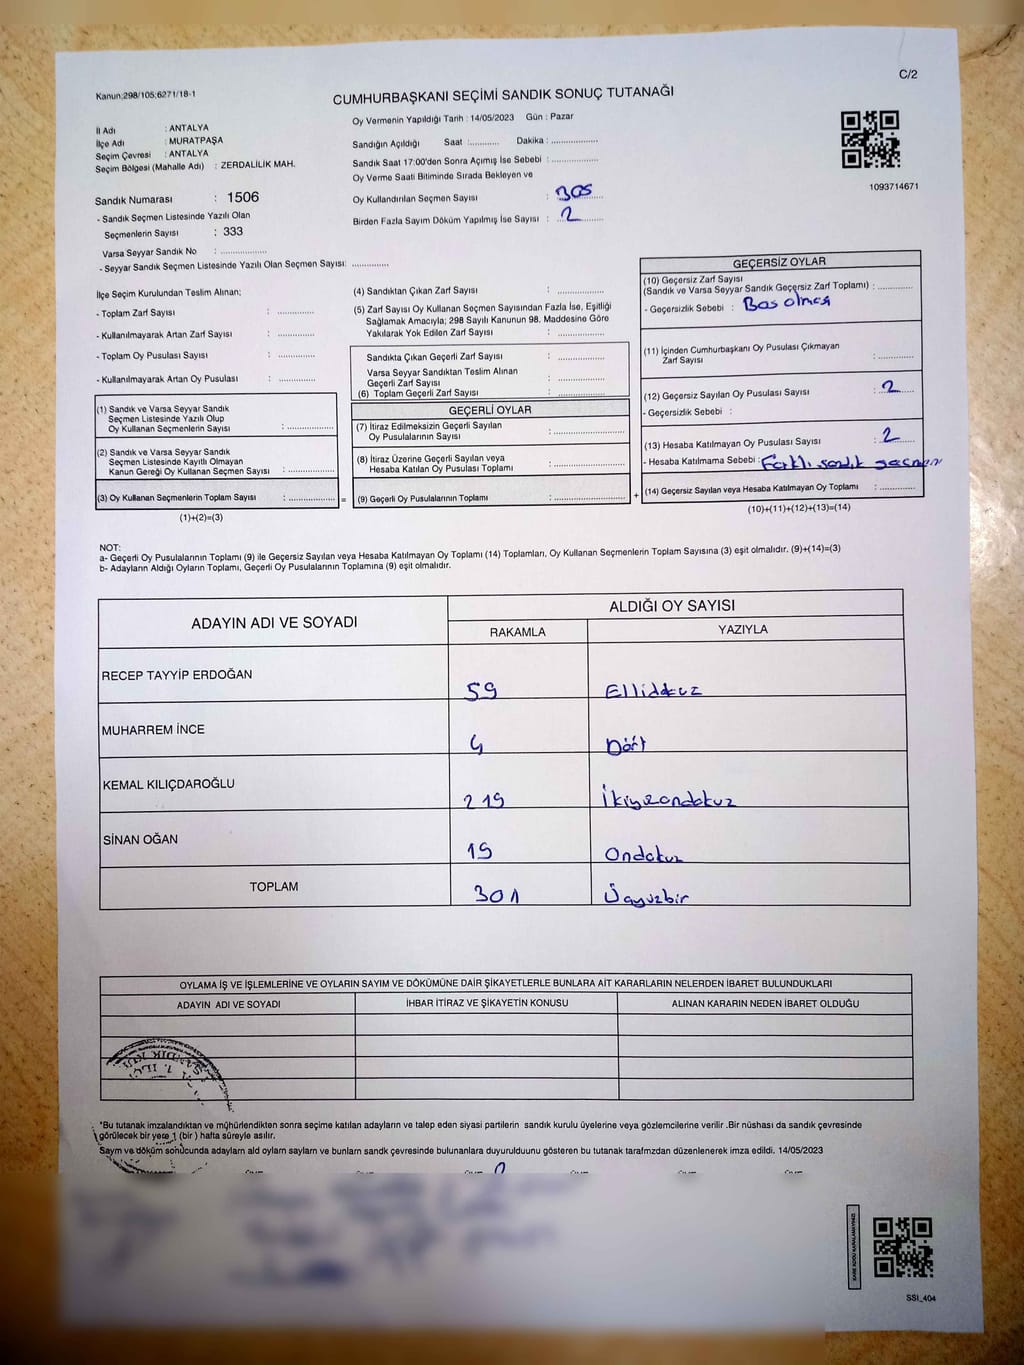 C/2
Kanun:298/105;6271/18-1
CUMHURBAŞKANI SEÇİMİ SANDIK SONUÇ TUTANAĞI
İl Adı : ANTALYA
İlçe Adı : MURATPAŞA
Seçim Çevresi : ANTALYA
Seçim Bölgesi (Mahalle Adı) : ZERDALİLİK MAH.
Oy Vermenin Yapıldığı Tarih : 14/05/2023 Gün : Pazar
Sandığın Açıldığı Saat :........... Dakika : ................
Sandık Saat 17:00'den Sonra Açımış İse Sebebi : ................
Oy Verme Saati Bitiminde Sırada Bekleyen ve
Oy Kullandırılan Seçmen Sayısı : 305
Birden Fazla Sayım Döküm Yapılmış İse Sayısı : 2
1093714671
Sandık Numarası : 1506
- Sandık Seçmen Listesinde Yazılı Olan
Seçmenlerin Sayısı : 333
Varsa Seyyar Sandık No : ................
- Seyyar Sandık Seçmen Listesinde Yazılı Olan Seçmen Sayısı: .............
İlçe Seçim Kurulundan Teslim Alınan;
- Toplam Zarf Sayısı : .............
- Kullanılmayarak Artan Zarf Sayısı : .............
- Toplam Oy Pusulası Sayısı : .............
- Kullanılmayarak Artan Oy Pusulası : .............
(1) Sandık ve Varsa Seyyar Sandık
Seçmen Listesinde Yazılı Olup
Oy Kullanan Seçmenlerin Sayısı : ................
(2) Sandık ve Varsa Seyyar Sandık
Seçmen Listesinde Kayıtlı Olmayan
Kanun Gereği Oy Kullanan Seçmen Sayısı : ................
(3) Oy Kullanan Seçmenlerin Toplam Sayısı : ................ =
(1)+(2)=(3)
(4) Sandıktan Çıkan Zarf Sayısı : ................
(5) Zarf Sayısı Oy Kullanan Seçmen Sayısından Fazla İse, Eşitliği
Sağlamak Amacıyla; 298 Sayılı Kanunun 98. Maddesine Göre
Yakılarak Yok Edilen Zarf Sayısı : ................
Sandıkta Çıkan Geçerli Zarf Sayısı : ................
Varsa Seyyar Sandıktan Teslim Alınan
Geçerli Zarf Sayısı : ................
(6) Toplam Geçerli Zarf Sayısı : ................
GEÇERLİ OYLAR
(7) İtiraz Edilmeksizin Geçerli Sayılan
Oy Pusulalarının Sayısı : ................
(8) İtiraz Üzerine Geçerli Sayılan veya
Hesaba Katılan Oy Pusulası Toplamı : ................
(9) Geçerli Oy Pusulalarının Toplamı : ................ +
GEÇERSİZ OYLAR
(10) Geçersiz Zarf Sayısı
(Sandık ve Varsa Seyyar Sandık Geçersiz Zarf Toplamı) : ............
- Geçersizlik Sebebi : Boş olması
(11) İçinden Cumhurbaşkanı Oy Pusulası Çıkmayan
Zarf Sayısı : ............
(12) Geçersiz Sayılan Oy Pusulası Sayısı : 2
- Geçersizlik Sebebi :
(13) Hesaba Katılmayan Oy Pusulası Sayısı : 2
- Hesaba Katılmama Sebebi : Farklı sandık seçmen
(14) Geçersiz Sayılan veya Hesaba Katılmayan Oy Toplamı : ............
(10)+(11)+(12)+(13)=(14)
NOT:
a- Geçerli Oy Pusulalarının Toplamı (9) ile Geçersiz Sayılan veya Hesaba Katılmayan Oy Toplamı (14) Toplamları, Oy Kullanan Seçmenlerin Toplam Sayısına (3) eşit olmalıdır. (9)+(14)=(3)
b- Adayların Aldığı Oyların Toplamı, Geçerli Oy Pusulalarının Toplamına (9) eşit olmalıdır.
ADAYIN ADI VE SOYADI ALDIĞI OY SAYISI
RAKAMLA YAZIYLA
RECEP TAYYİP ERDOĞAN 59 Ellidokuz
MUHARREM İNCE 4 Dört
KEMAL KILIÇDAROĞLU 219 İkiyüzondokuz
SİNAN OĞAN 19 Ondokuz
TOPLAM 301 Üçyüzbir
OYLAMA İŞ VE İŞLEMLERİNE VE OYLARIN SAYIM VE DÖKÜMÜNE DAİR ŞİKAYETLERLE BUNLARA AİT KARARLARIN NELERDEN İBARET BULUNDUKLARI
ADAYIN ADI VE SOYADI İHBAR İTİRAZ VE ŞİKAYETİN KONUSU ALINAN KARARIN NEDEN İBARET OLDUĞU
*Bu tutanak imzalandıktan ve mühürlendikten sonra seçime katılan adayların ve talep eden siyasi partilerin sandık kurulu üyelerine veya gözlemcilerine verilir .Bir nüshası da sandık çevresinde
görülecek bir yere 1 (bir ) hafta süreyle asılır.
Sayım ve döküm sonucunda adaylarn ald oylarn saylarn ve bunlarn sandk çevresinde bulunanlara duyurulduunu gösteren bu tutanak tarafmzdan düzenlenerek imza edildi. 14/05/2023
SSİ_404